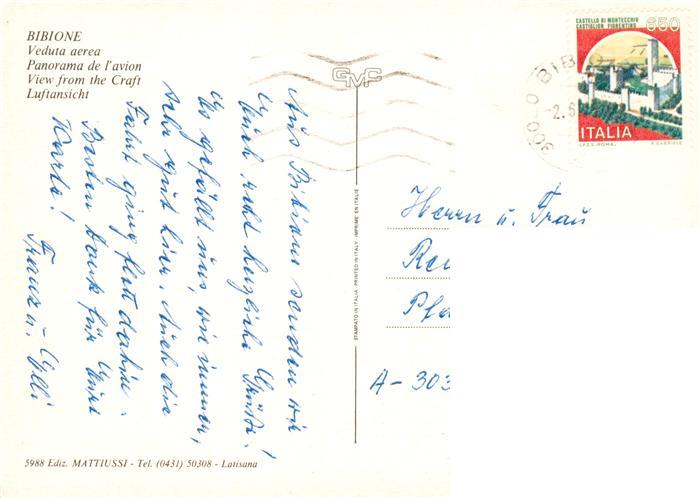 BIBIONE
Veduta aerea
Panorama de l'avion
View from the Craft
Luftansicht
GMC
CASTELLO DI MONTECCHIO
CASTIGLION FIORENTINO
650
ITALIA
I.P.Z.S.-ROMA
30020 BIBIO
-2.
Aus Bibione senden wir
Euch recht herzliche Grüße!
Es gefällt uns, wie immer,
sehr gut hier. Auch die
Fahrt ging glatt dahin.
Besten Dank für Eure
Karte!
Franz u.
STAMPATO IN ITALIA - PRINTED IN ITALY - IMPRIME EN ITALIE
Herrn u. Frau
A-303
5988 Ediz. MATTIUSSI - Tel. (0431) 50308 - Latisana